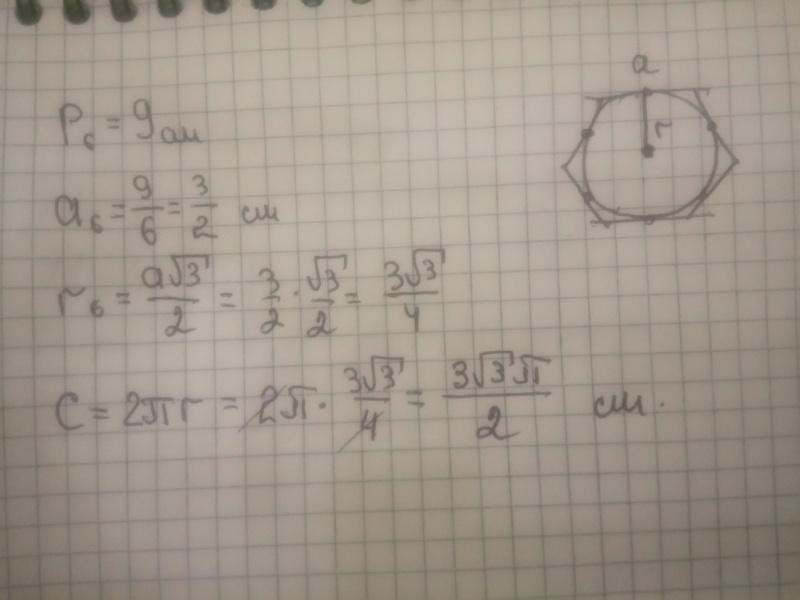 a
r
P₆ = 9 см
a₆ = 9/6 = 3/2 см
r₆ = a√3/2 = 3/2 · √3/2 = 3√3/4
C = 2πr = 2π · 3√3/4 = 3√3π/2 см.